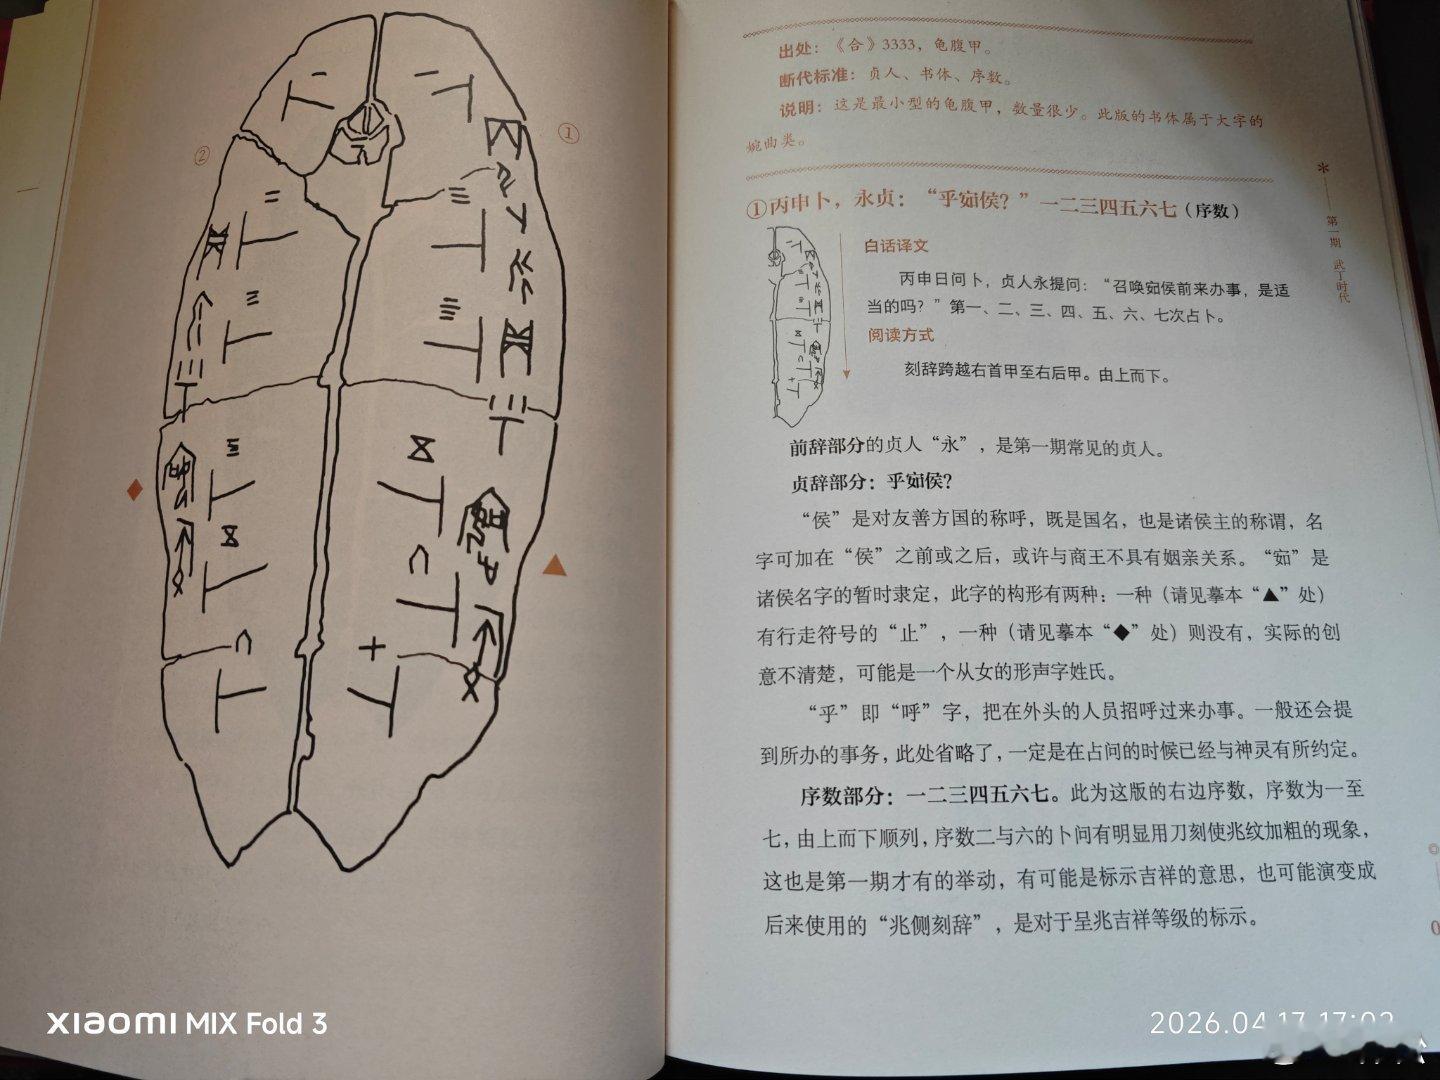 ①
②
出处：《合》3333，龟腹甲。
断代标准：贞人、书体、序数。
说明：这是最小型的龟腹甲，数量很少。此版的书体属于大字的
婉曲类。
①丙申卜，永贞：“乎㚼侯？”一二三四五六七（序数）
白话译文
丙申日问卜，贞人永提问：“召唤㚼侯前来办事，是适
当的吗？”第一、二、三、四、五、六、七次占卜。
阅读方式
刻辞跨越右首甲至右后甲。由上而下。
前辞部分的贞人“永”，是第一期常见的贞人。
贞辞部分：乎㚼侯？
“侯”是对友善方国的称呼，既是国名，也是诸侯主的称谓，名
字可加在“侯”之前或之后，或许与商王不具有姻亲关系。“㚼”是
诸侯名字的暂时隶定，此字的构形有两种：一种（请见摹本“▲”处）
有行走符号的“止”，一种（请见摹本“◆”处）则没有，实际的创
意不清楚，可能是一个从女的形声字姓氏。
“乎”即“呼”字，把在外头的人员招呼过来办事。一般还会提
到所办的事务，此处省略了，一定是在占问的时候已经与神灵有所约定。
序数部分：一二三四五六七。此为这版的右边序数，序数为一至
七，由上而下顺列，序数二与六的卜问有明显用刀刻使兆纹加粗的现象，
这也是第一期才有的举动，有可能是标示吉祥的意思，也可能演变成
后来使用的“兆侧刻辞”，是对于呈兆吉祥等级的标示。
第一期 武丁时代
XIAOMI MIX Fold 3
2026.04.17 17:02